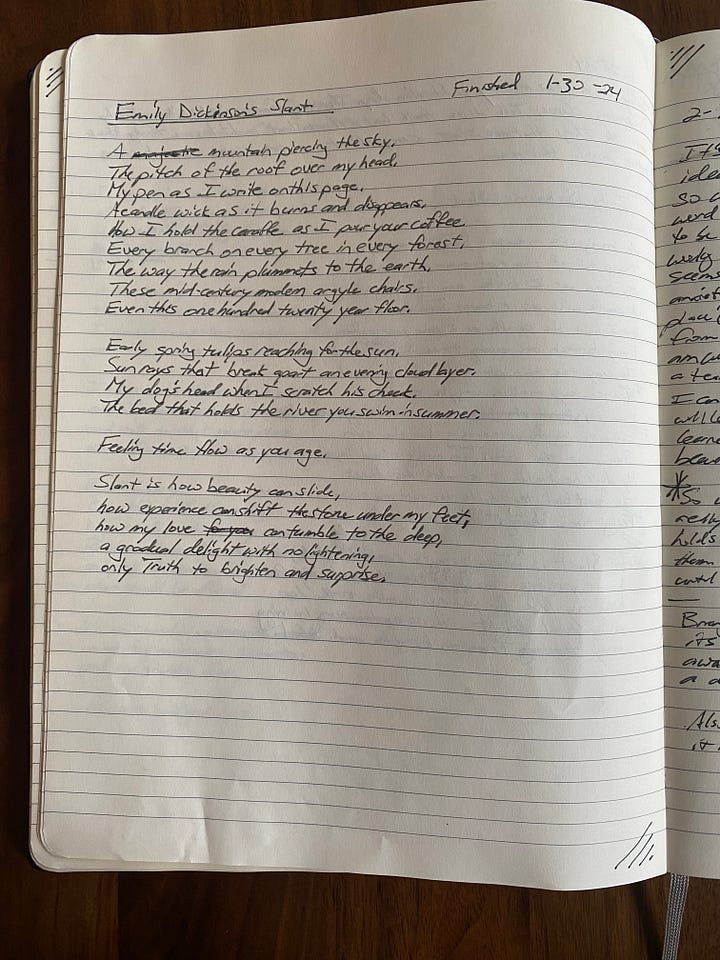 Emily Dickinson's Slant
Finished 1-30-24
A majestic mountain piercing the sky.
The pitch of the roof over my head.
My pen as I write on this page.
A candle wick as it burns and disappears.
How I hold the caraffe as I pour your coffee
Every branch on every tree in every forest.
The way the rain plummets to the earth.
These mid-century modern argyle chairs.
Even this one hundred twenty year floor.
Early spring tulips reaching for the sun.
Sun rays that break apart an evening cloud layer.
My dog's head when I scratch his cheek.
The bed that holds the river you swim in summer.
Feeling time flow as you age.
Slant is how beauty can slide,
how experience can shift the stone under my feet,
how my love for you can tumble to the deep,
a gradual delight with no lightening,
only Truth to brighten and surprise.
2-
It
idea
so
word
to be
seems
from
a tea
I can
will
learn
beau
So
holds
them
until
its
awa
a
Als
it